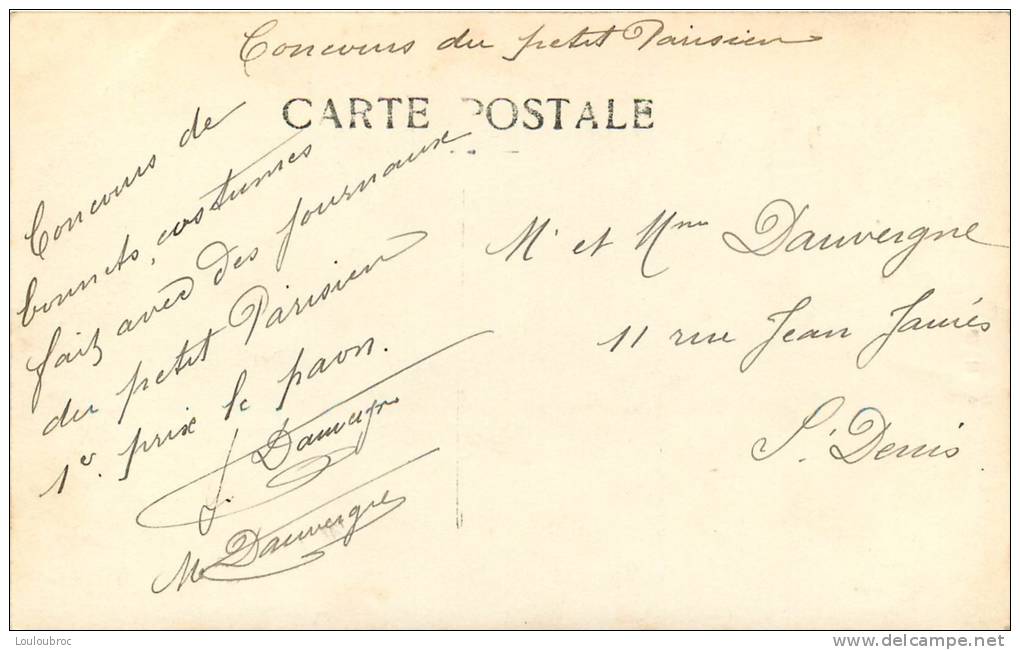 Concours du petit Parisien
CARTE POSTALE
Concours de
bonnets, costumes
fait avec des journaux
du petit Parisien
1er prix le paon.
J. Dauvergne
M Dauvergne
Mr et Mme Dauvergne
11 rue Jean Jaurés
St Denis
Louloubroc
www.delcampe.net